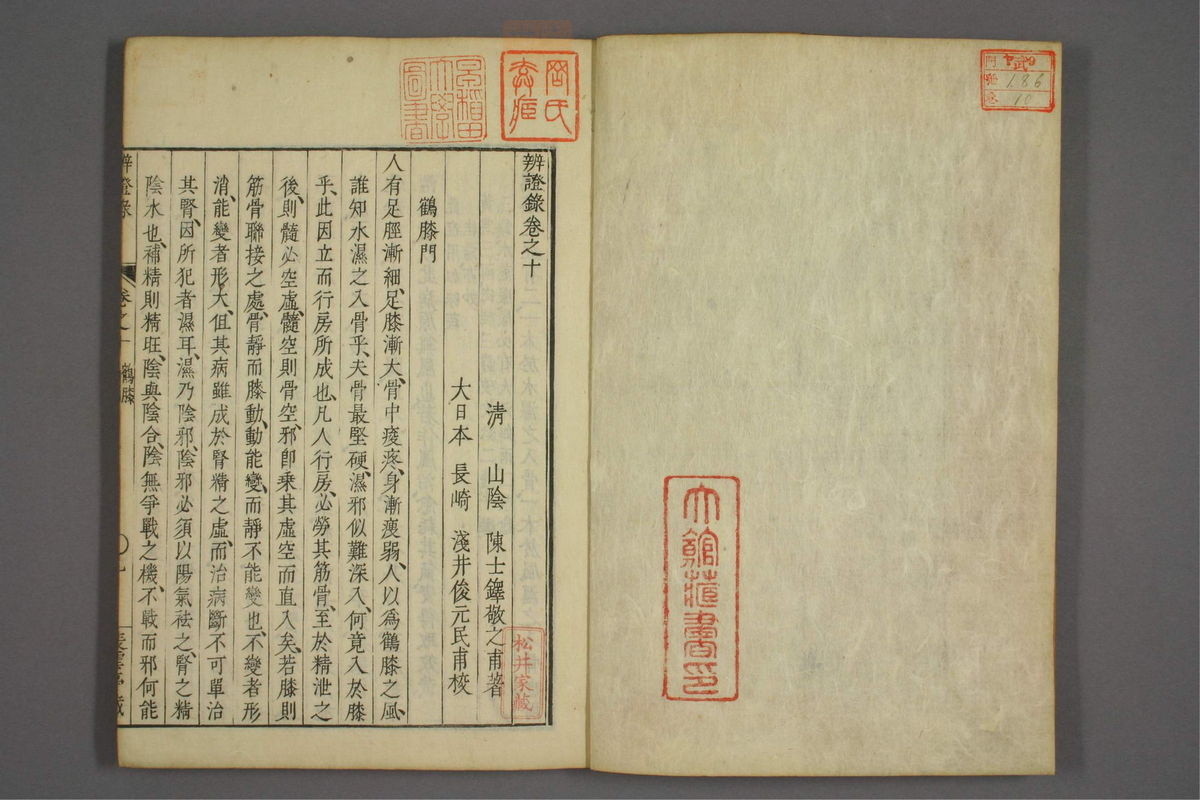 辨證錄卷之十
清 山陰 陳士鐸敬之甫著
大日本 長崎 淺井俊元民甫校
鶴膝門
人有足脛漸細、足膝漸大、骨中痠疼、身漸瘦弱、人以爲鶴膝之風、
誰知水濕之入骨乎、夫骨最堅硬、濕邪似難深入、何竟入於膝
乎、此因立而行房所成也、凡人行房、必勞其筋骨、至於精泄之
後、則髓必空虛、髓空則骨空、邪卽乘其虛空而直入矣、若膝則
筋骨聯接之處、骨靜而膝動、動能變、而靜不能變也、不變者形
消、能變者形大、但其病雖成於腎精之虛、而治病斷不可單治
其腎、因所犯者濕耳、濕乃陰邪、陰邪必須以陽氣祛之、腎之精
陰水也、補精則精旺、陰與陰合、陰無爭戰之機、不戰而邪何能
辨證錄
卷之十
鶴膝
早稻田
大學
圖書
松井家藏
186
10